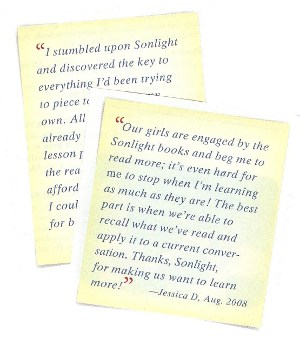 “I stumbled upon Sonlight
and discovered the key to
everything I’d been trying
to piece to
own. All
already
lesson
the rea
afford
I coul
for b
“Our girls are engaged by the
Sonlight books and beg me to
read more; it’s even hard for
me to stop when I’m learning
as much as they are! The best
part is when we’re able to
recall what we’ve read and
apply it to a current conver-
sation. Thanks, Sonlight,
for making us want to learn
more!”
—Jessica D, Aug. 2008